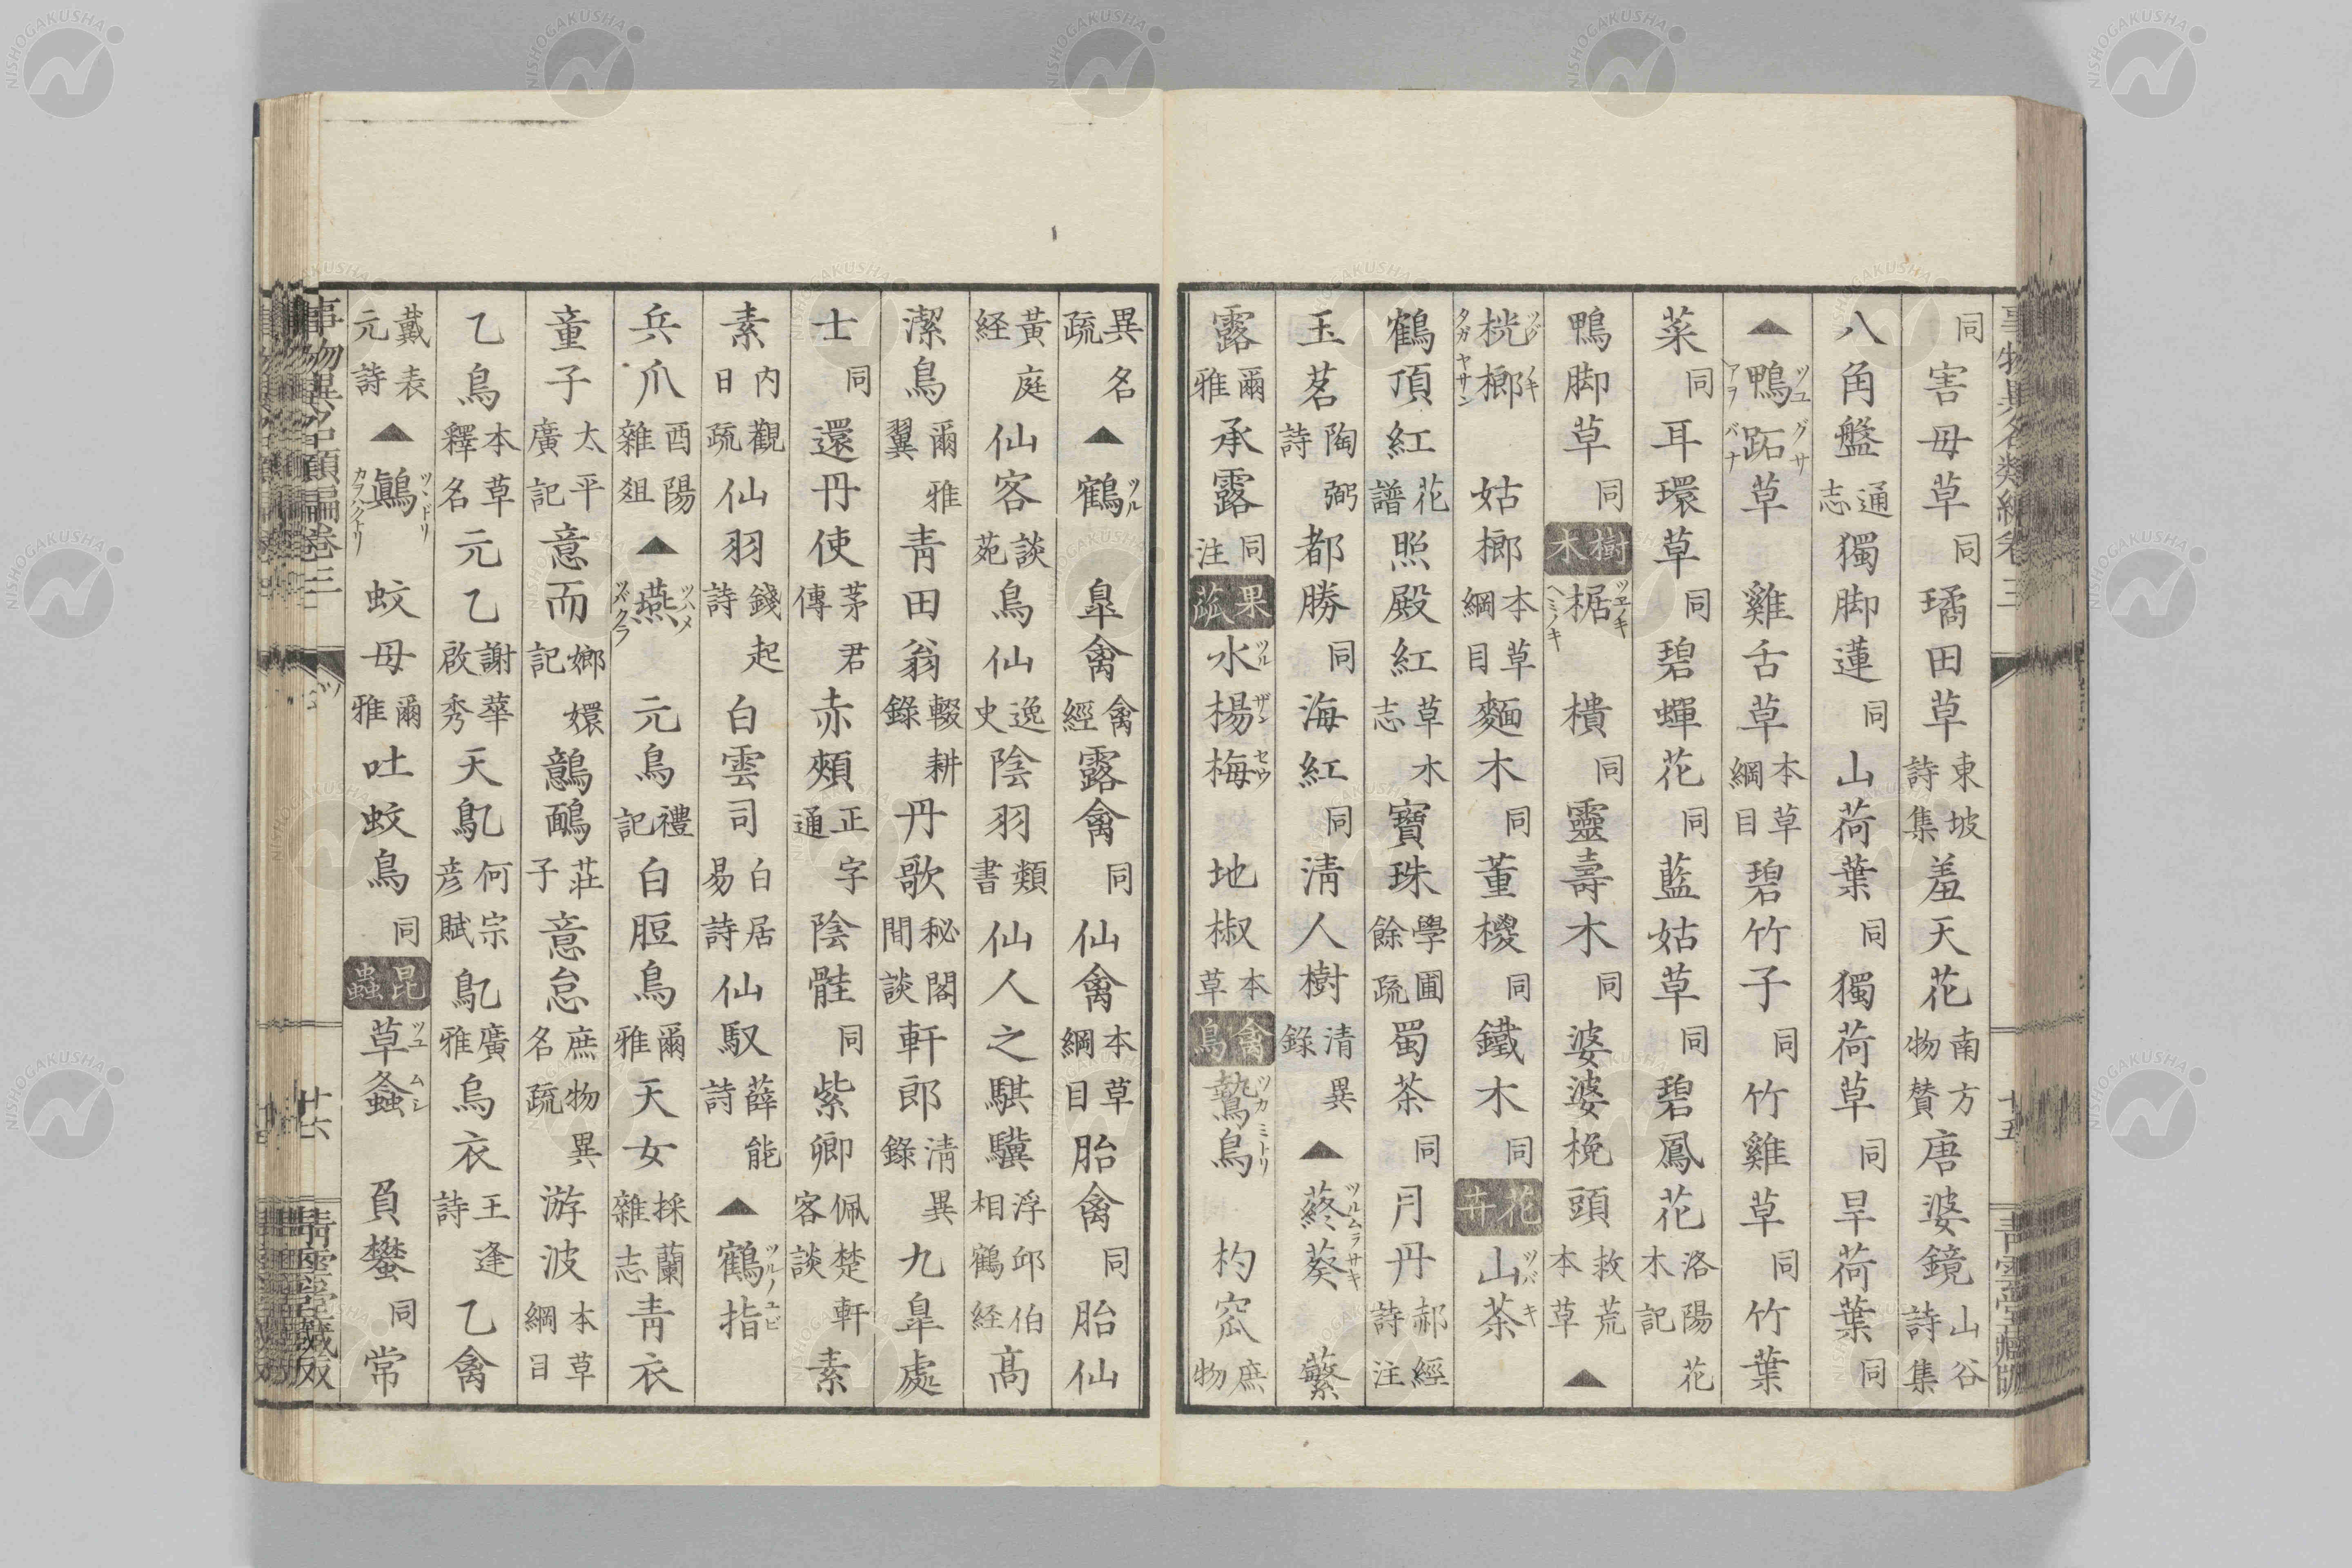 同害母草同璚田草東坡詩集羞天花南方物賛唐婆鏡山谷詩集
八角盤通志獨脚蓮同山荷葉同獨荷草同旱荷葉同
▲鴨跖草ツユグサアヲバナ雞舌草本草綱目碧竹子同竹雞草同竹葉
菜同耳環草同碧蟬花同藍姑草同碧鳳花洛陽花木記
鴨脚草同樹木椐ツヱノキヘミノキ樻同靈壽木同婆婆梚頭救荒本草▲
桄榔ツグノキタガヤサン姑榔本草綱目麵木同董椶同鐵木同花卉山茶ツバキ
鶴頂紅花譜照殿紅草木志寶珠學圃餘疏蜀茶同月丹郝經詩注
玉茗陶弼詩都勝同海紅同淸人樹清異錄▲蔠葵ツルムラサキ蘩
露爾雅承露同注果蓏水楊梅ツルザンセウ地椒本草禽鳥鷙鳥ツカミトリ杓窊庶物
異名疏▲鶴ツル皐禽禽經露禽同仙禽本草綱目胎禽同胎仙
黃庭経仙客談苑鳥仙逸史陰羽類書仙人之騏驥浮邱伯相鶴経高
潔鳥爾雅翼靑田翁輟耕錄丹歌秘閣閒談軒郎淸異錄九皐處
士同還丹使茅君傳赤頰正字通陰䳗同紫卿佩楚軒客談素
素内觀日疏仙羽錢起詩白雲司白居易詩仙馭薛能詩▲鶴指ツルノユビ
兵爪酉陽雜俎▲燕ツハメツバクラ元鳥禮記白脰鳥爾雅天女採蘭雜志靑衣
童子太平廣記意而嫏嬛記鷾鴯荘子意怠庶物異名疏游波本草綱目
乙鳥本草釋名元乙謝華啟秀天鳦何彦宗賦鳦廣雅烏衣王逢詩乙禽
戴表元詩▲鷏ツヽドリカヲハクトリ蚊母爾雅吐蚊鳥同昆蟲草螽ツユムシ負蠜同常
事物異名類編卷三
ツ
廿六
靑雲堂藏版